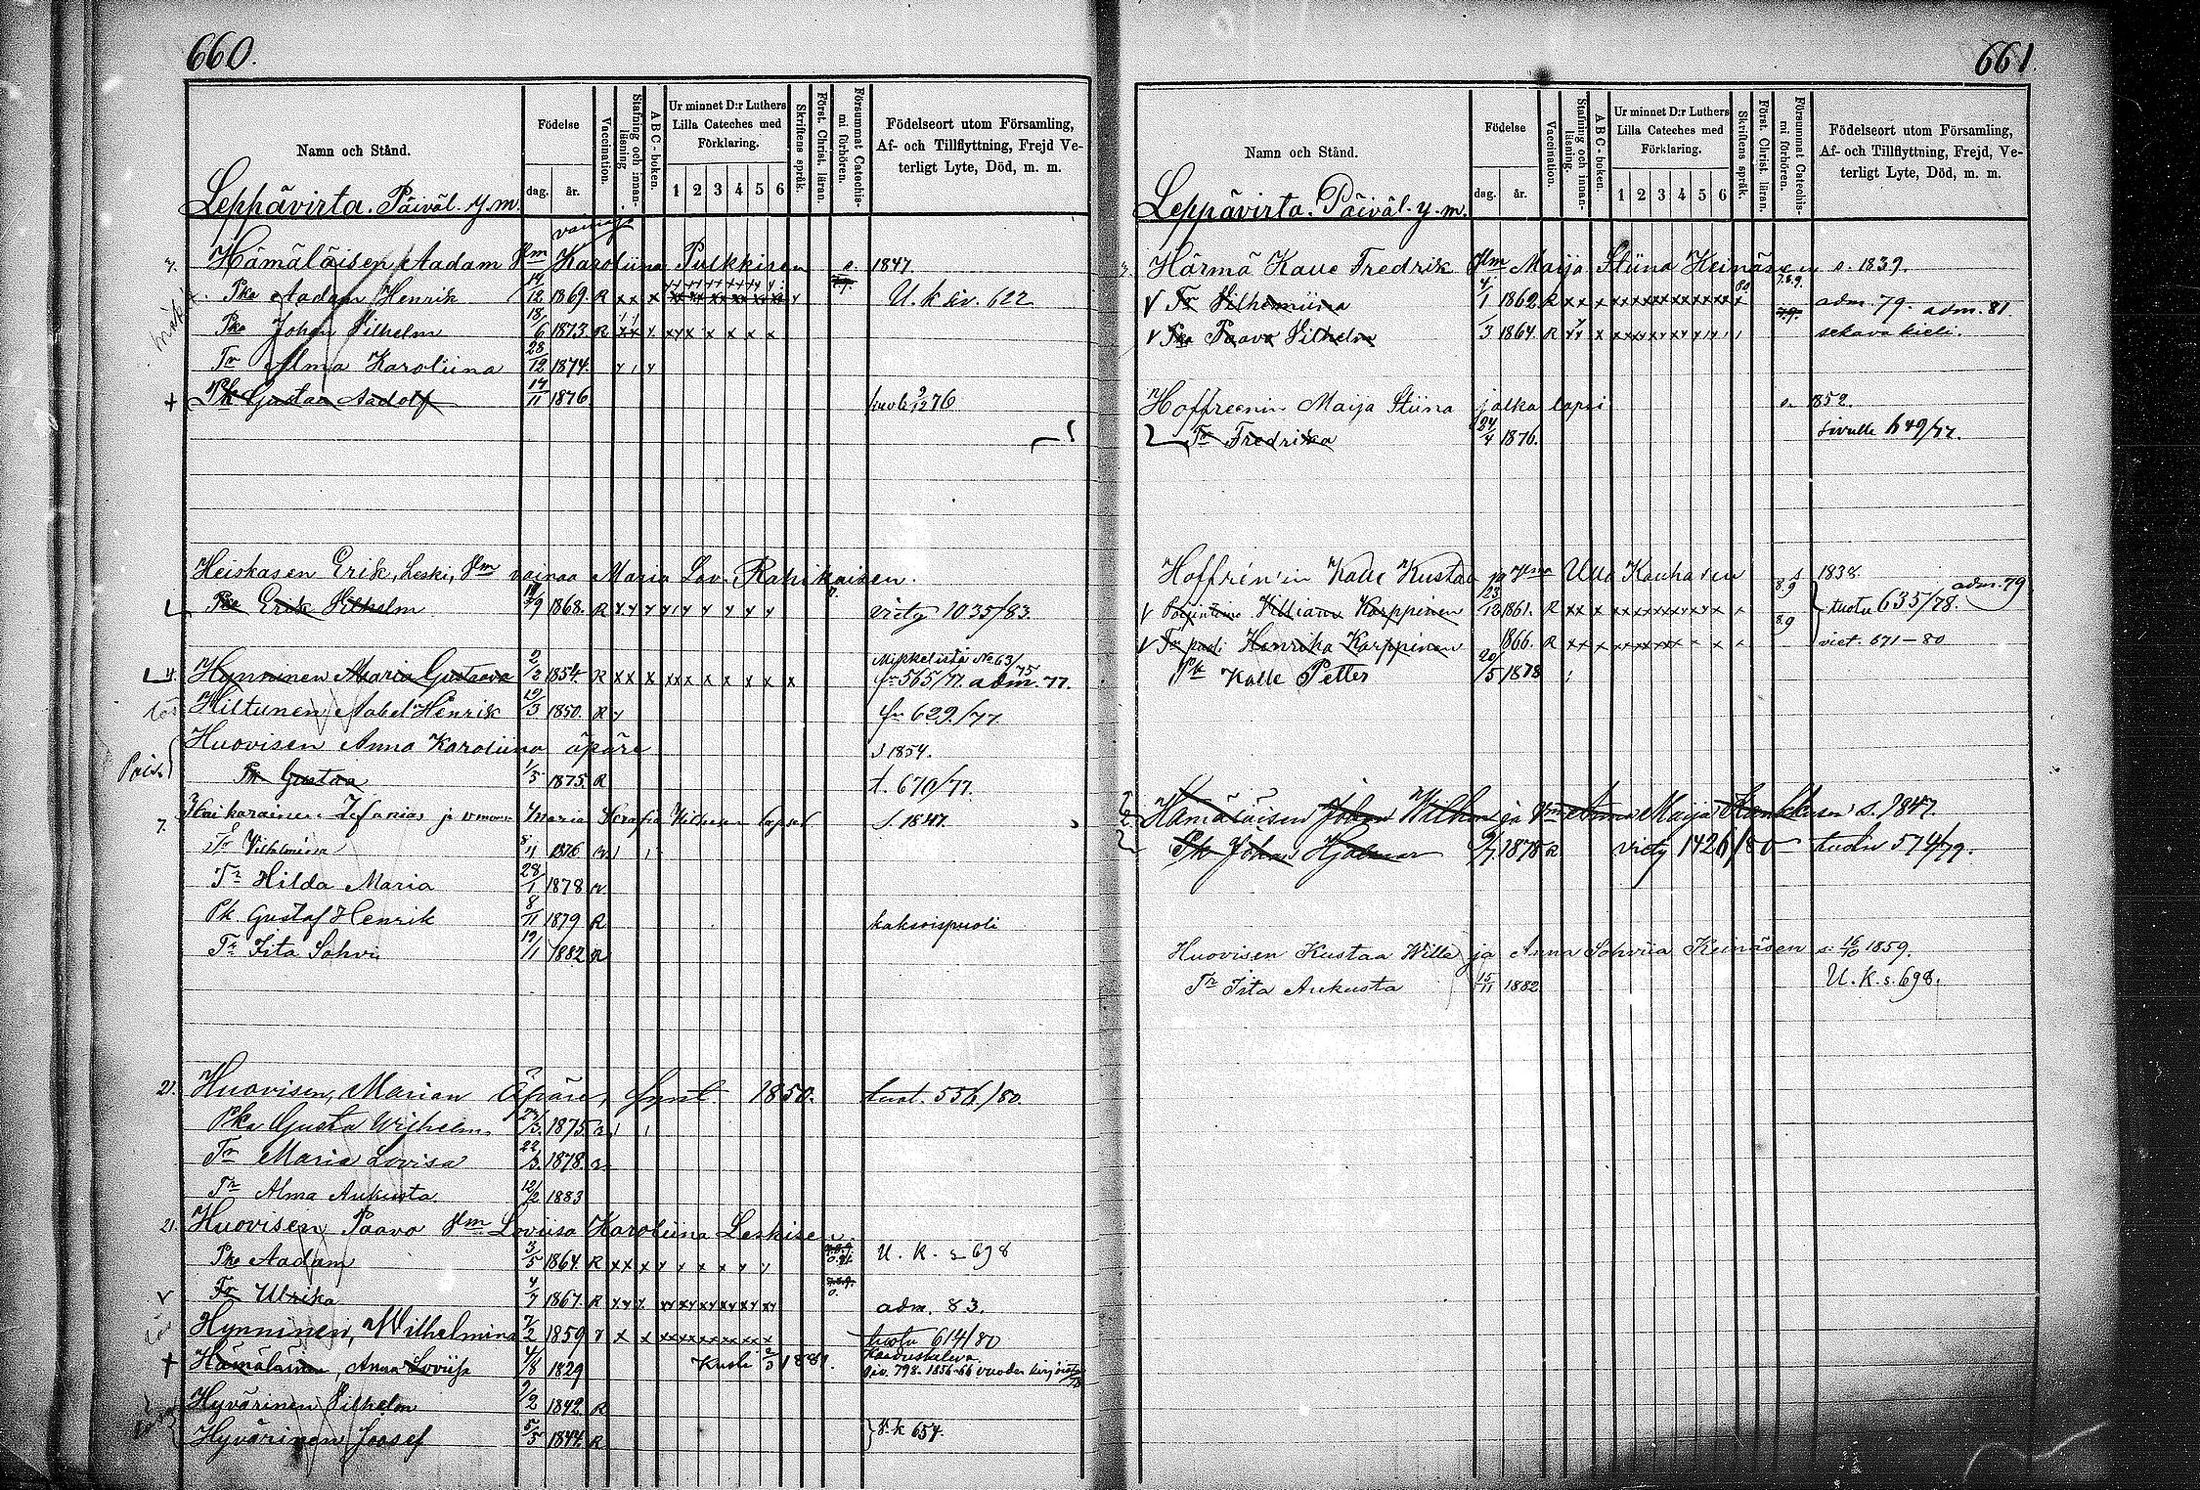 660.
Namn och Stånd.
Födelse
dag. år.
Vaccination.
Stafning och innan-läsning
A B C-boken.
Ur minnet D:r Luthers Lilla Cateches med Förklaring.
1 2 3 4 5 6
Skriftens språk.
Först. Christ. läran.
Försummat Catechis-mi förhören.
Födelseort utom Församling, Af- och Tillflyttning, Frejd Ve-terligt Lyte, Död, m. m.
Leppävirta. Päiväl. y.m.
Hämäläisen Aadam Hm Karoliina Pulkkisen s. 1847
Pke Aadam Henrik 12 1869. R U. k siv. 622.
Pke Johan Vilhelm 18/6 1873. R
Tr Alma Karoliina 28/12 1874.
+ Pk Gustaa Aadolf 14/11 1876 kuoli 3/12 76
Heiskasen Erik, Leski, Hm vainaa Maria Lov. Rahikaisen.
Pke Erik Vilhelm 1868. R viety 1035/83.
Hynninen Maria Gustaava 2/2 1854. R Mikkelistä No 63/75 fr 565/77. adm. 77.
Hiltunen Aabel Henrik 19/3 1850. R fr 629/77.
Huovisen Anna Karoliina äpäre s 1854.
Pk Gustaa 1/5 1875. R t. 670/77.
7. Zefanias ja Maria lapset s. 1847.
Tr Vilhelmiina 8/11 1876
Tr Hilda Maria 28/1 1878
Pk. Gustaf Henrik 8/11 1879 R kaksoispuoli
Tr Iita Sohvi 19/11 1882 R
21. Huovisen, Marian Äpäre, synt. 1850. tuot. 556/80.
Pke Gusta Wilhelm 1875
Tr Maria Lovisa 22/3 1878.
Tr Alma Aukusta 12/2 1883
21. Huovisen Paavo Hm Loviisa Karoliina Leskisen
Pke Aadam 3/5 1864. R U. K. s 698
Tr Ulrika 4/7 1867. R adm. 83.
Hynninen, Wilhelmina 7/2 1859 tuotu 614/80
+ Hämäläinen, Anna Loviisa 4/8 1829 Kuoli 2/3 1881. siv. 798. 1856-66 vuoden
Hyvärinen Vilhelm 9/2 1842. R
Hyvärinen Joosef 5/5 1844. R } S. k 657.
661.
Namn och Stånd.
Födelse
dag. år.
Vaccination.
Stafning och innan-läsning.
A B C-boken.
Ur minnet D:r Luthers Lilla Cateches med Förklaring.
1 2 3 4 5 6
Skriftens språk.
Först. Christ. läran.
Försummat Catechis-mi förhören.
Födelseort utom Församling, Af- och Tillflyttning, Frejd, Ve-terligt Lyte, Död, m. m.
Leppävirta. Päiväl. y. m.
Härmä Kalle Fredrik Hm Maija Stiina Heinäsen s. 1839.
V Tr Vilhemiina 4/1 1862. R adm. 79. adm. 81.
V Pke Paavo Vilhelm /3 1864. R sekava kieli.
Hoffreenin Maija Stiina jalka lapsi s. 852.
Tr Fredrika 24/4 1876. sivulle 649/77.
Hoffrén'in Kalle Kustaa ja Hm Ulla Kauhasen s 1838
V Viliam Karppinen 23/12 1861. R tuotu 635/78. adm. 79
V Tr puoli Henrika Karppinen 1866. R viet. 671-80
Pk Kalle Petter 20/5 1878
Hämäläisen Johan Wilhm ja Hm Anna Maija s. 1847.
Pk Johan Hjalmar 9/7 1878 R viety 1426/80 tuotu 574/79.
Huovisen Kustaa Wille ja Anna Sohviia Keinäsen s. 16/10 1859.
Tr Iita Aukusta 15/11 1882 U. K. s. 698.